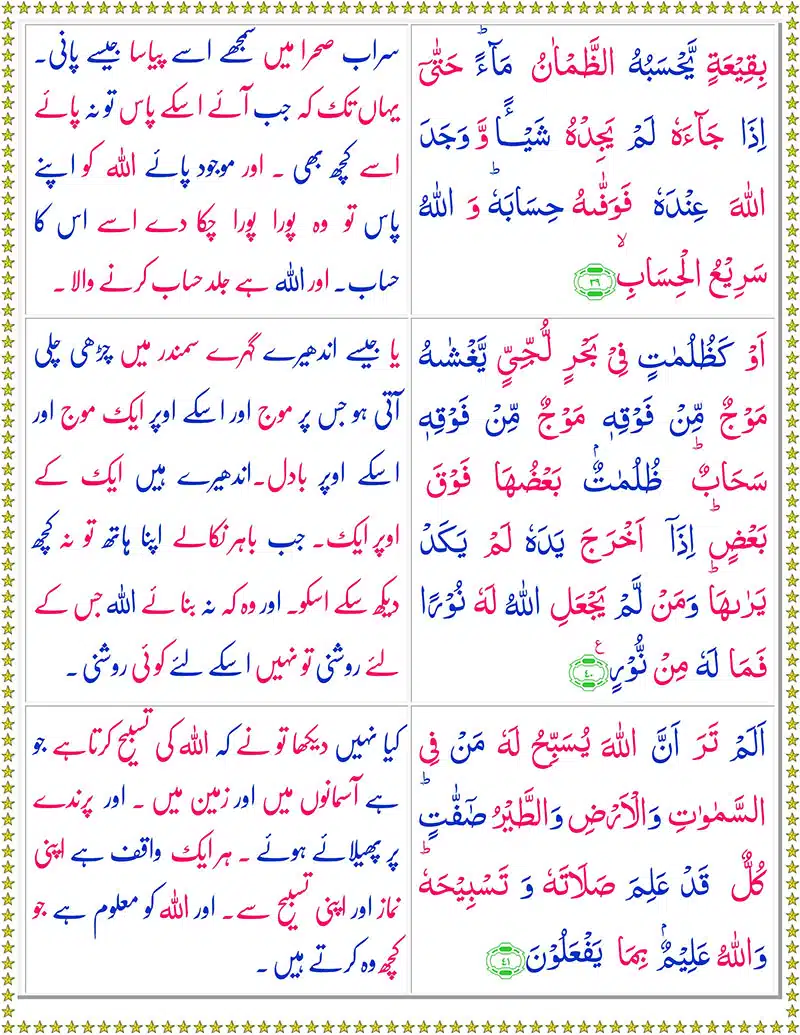 بِقِيْعَةٍ يَّحْسَبُهُ الظَّمْاٰنُ مَآءً ؕ حَتّٰۤى
اِذَا جَآءَهٗ لَمْ يَجِدْهُ شَيْـًٔـا وَّ وَجَدَ
اللّٰهَ عِنْدَهٗ فَوَفّٰىهُ حِسَابَهٗ ؕ وَ اللّٰهُ
سَرِيْعُ الْحِسَابِ ۙ ﴿۳۹﴾
سراب صحرا میں سمجھے اسے پیاسا جیسے پانی۔
یہاں تک کہ جب آئے اسکے پاس تو نہ پائے
اسے کچھ بھی ۔ اور موجود پائے اللہ کو اپنے
پاس تو وہ پورا پورا چکا دے اسے اس کا
حساب۔ اور اللہ ہے جلد حساب کرنے والا ۔
اَوْ كَظُلُمٰتٍ فِيْ بَحْرٍ لُّجِّيٍّ يَّغْشٰىهُ
مَوْجٌ مِّنْ فَوْقِهٖ مَوْجٌ مِّنْ فَوْقِهٖ
سَحَابٌ ؕ ظُلُمٰتٌۢ بَعْضُهَا فَوْقَ
بَعْضٍ ؕ اِذَاۤ اَخْرَجَ يَدَهٗ لَمْ يَكَدْ
يَرٰىهَا ؕ وَمَنْ لَّمْ يَجْعَلِ اللّٰهُ لَهٗ نُوْرًا
فَمَا لَهٗ مِنْ نُّوْرٍ ﴿۴۰﴾ ع
یا جیسے اندھیرے گہرے سمندر میں چڑھی چلی
آتی ہو جس پر موج اور اسکے اوپر ایک موج اور
اسکے اوپر بادل۔اندھیرے ہیں ایک کے
اوپر ایک۔ جب باہر نکالے اپنا ہاتھ تو نہ کچھ
دیکھ سکے اسکو۔ اور وہ کہ نہ بنائے اللہ جس کے
لئے روشنی تو نہیں اسکے لئے کوئی روشنی ۔
اَلَمْ تَرَ اَنَّ اللّٰهَ يُسَبِّحُ لَهٗ مَنْ فِي
السَّمٰوٰتِ وَالْاَرْضِ وَالطَّيْرُ صٰٓفّٰتٍ ؕ
كُلٌّ قَدْ عَلِمَ صَلَاتَهٗ وَ تَسْبِيْحَهٗ ؕ
وَاللّٰهُ عَلِيْمٌۢ بِمَا يَفْعَلُوْنَ ﴿۴۱﴾
کیا نہیں دیکھا تو نے کہ اللہ کی تسبیح کرتا ہے جو
ہے آسمانوں میں اور زمین میں ۔ اور پرندے
پر پھیلائے ہوئے ۔ ہر ایک واقف ہے اپنی
نماز اور اپنی تسبیح سے۔ اور اللہ کو معلوم ہے جو
کچھ وہ کرتے ہیں ۔